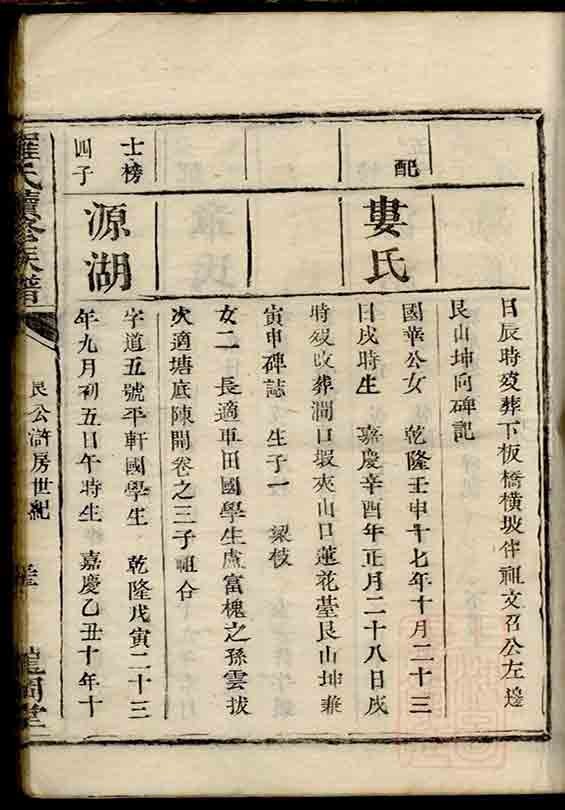 日辰時歿葬下板橋橫坡伴祖文召公左邊
艮山坤向碑記
配
婁氏
國華公女 乾隆壬申十七年十月二十三
日戌時生 嘉慶辛酉年正月二十八日戌
時歿改葬澗口塅夾山口蓮花臺艮山坤兼
寅申碑誌 生子一 梁枝
女二 長適車田國學生盧富槐之孫雲拔
次適塘底陳開卷之三子祖合
士榜
四子
源湖
字道五號平軒國學生 乾隆戊寅二十三
年九月初五日午時生 嘉慶乙丑十年十
羅氏續修族譜
艮公滸房世紀